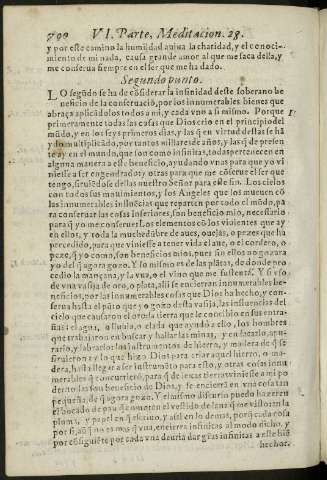 700 VI. Parte, Meditacion. 28.
y por este camino la humildad aviua la charidad, y el conoci-
miento de mi nada, causa grande amor al que me saca della, y
me conserua siempre en el ser que me ha dado.
Segundo punto.
LO segũdo se ha de cõsiderar la infinidad deste soberano be
neficio de la conseruaciõ, por los innumerables bienes que
abraça aplicãdolos todos a mi, y cada vno a si mismo. Porque
primeramente todas las cosas que Dios crio en el principio del
mũdo, y en los seys primeros dias, y las q̃ en virtud dellas se hã
ydo multiplicãdo, por tantos millares de años, y las q̃ de presen
te ay en el mundo, que son como infinitas, todas pertenecen en
alguna manera a este beneficio, ayudando vnas para que yo vi
niesse a ser engendrado y otras para que me cõserue el ser que
tengo, siruiẽdose dellas nuestro Señor para este fin. Los cielos
con todos sus mouimientos, y los Angeles que los mueuẽ cõ
las innumerables influẽcias que reparten por todo el mũdo, pa
ra conseruar las cosas inferiores, son beneficio mio, necessario
para q̃ yo me conserue. Los elementos cõ los viuientes que ay
en ellos, y toda la muchedũbre de aues, ouejas, o pezes que ha
percedido, para que viniesse a tener vida el aue, o el cordero, o
peze, q̃ yo como, son beneficios mios, pues sin ellos no gozara
yo del q̃ agora gozo. Y lo mismo es de las plãtas, de dõnde pro
cedio la mançana, y la vua, o el vino que me sustentã. Y si vso
de vna vasija de oro, o plata, alli se encierran innumerables be
neficios, por las innumerables cosas que Dios ha hecho, y con-
serua hasta el pũto que yo gozo desta vasija, las influencias del
cielo que causaron el oro: la tierra que le concibio en sus entra-
ñas: el agua, o lluuia, o elada que ayudò a ello, los hombres
que trabajaron en buscar y hallar las minas, y en sacarlo, apu-
rarlo, y labrarlo: los instrumentos de hierro, y madera de q̃ se
siruieron: y lo que hizo Dios para criar aquel hierro, o ma-
dera, hasta llegar a ser instrumẽto para esto, y otras cosas innu
merables
derito las son beneficio de Dios, y se encierrã en vna cosa tan
pequeña, de q̃ agora gozo. Y el mismo discurso puedo hazer en
el bocado de pan q̃ como, en el vestido de lana q̃ me visto: en la
pluma, y papel en q̃ escriuo, y assi en lo demas, porq̃ cada cosa
por si, aũq̃ no es mas q̃ vna, encierra infinitas al modo dicho, y
por cõsiguiẽte por cada vna deuria dar grãs infinitas a este biẽ
hechor.